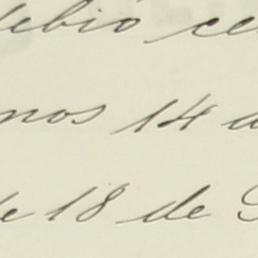 debió ce
nos 14 d
de 18 de